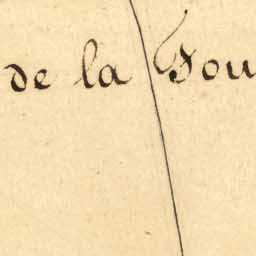 de la Sou